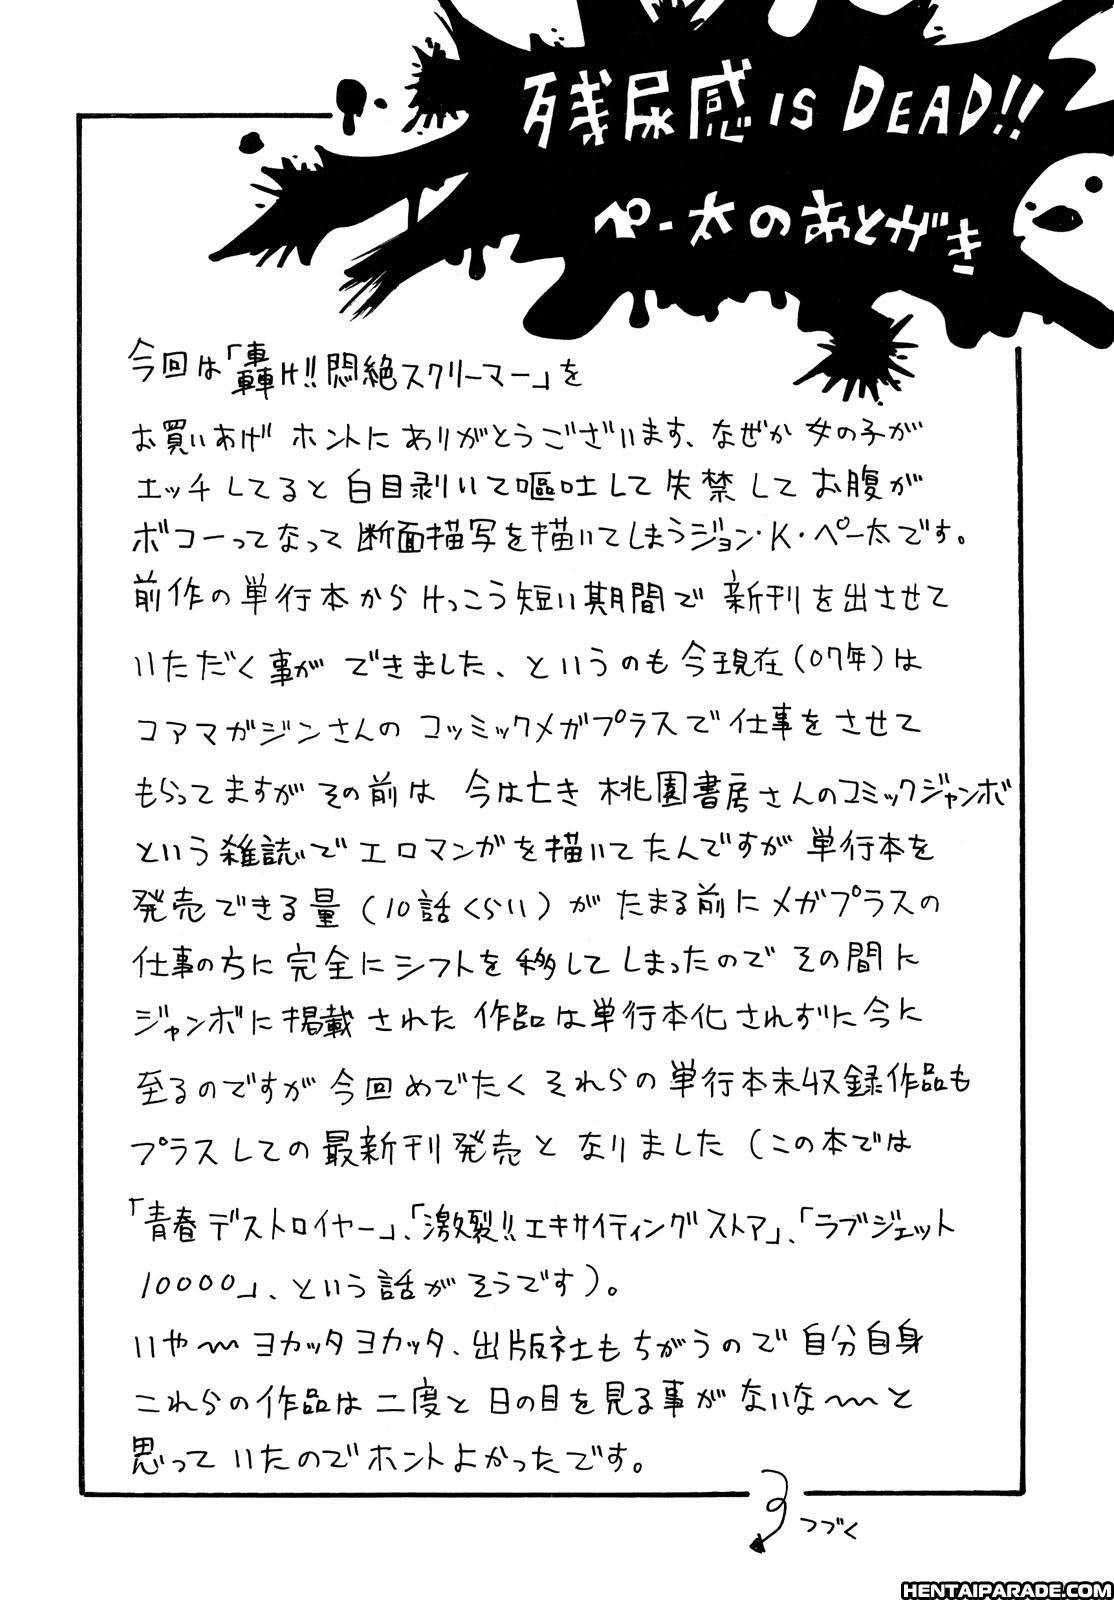 残尿感 IS DEAD!!
ペー太のあとがき
今回は「轟け!!悶絶スクリーマー」を
お買いあげ ホントにありがとうございます、なぜか 女の子が
エッチしてると 白目剥いて嘔吐して失禁してお腹が
ボコーってなって断面描写を描いてしまうジョン・K・ペー太です。
前作の単行本からけっこう短い期間で 新刊を出させて
いただく事が できました、というのも今現在(07年)は
コアマガジンさんの コッミックメガプラスで仕事をさせて
もらってますがその前は 今は亡き 桃園書房さんのコミックジャンボ
という雑誌でエロマンガを描いてたんですが単行本を
発売できる量(10話くらい)がたまる前にメガプラスの
仕事の方に完全にシフトを移してしまったのでその間に
ジャンボに掲載された作品は単行本化されずに今に
至るのですが今回めでたくそれらの単行本未収録作品も
プラスしての最新刊発売となりました(この本では
「青春デストロイヤー」、「激裂!!エキサイティングストア」、「ラブジェット
10000」、という話がそうです)。
いや〜ヨカッタヨカッタ、出版社もちがうので自分自身
これらの作品は二度と日の目を見る事がないな〜と
思っていたのでホントよかったです。
つづく
HENTAIPARADE.COM